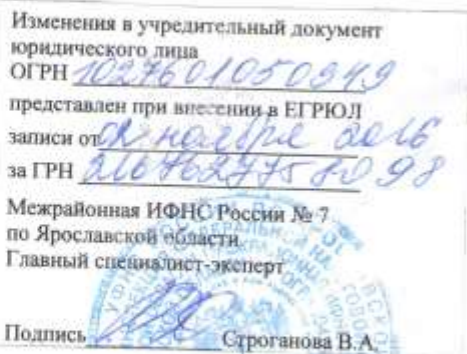 Изменения в учредительный документ
юридического лица
ОГРН 1027601050949
представлен при внесении в ЕГРЮЛ
записи от 02 ноября 2016
за ГРН
Межрайонная ИФНС России № 7
по Ярославской области
Главный специалист-эксперт
Подпись Строганова В.А.